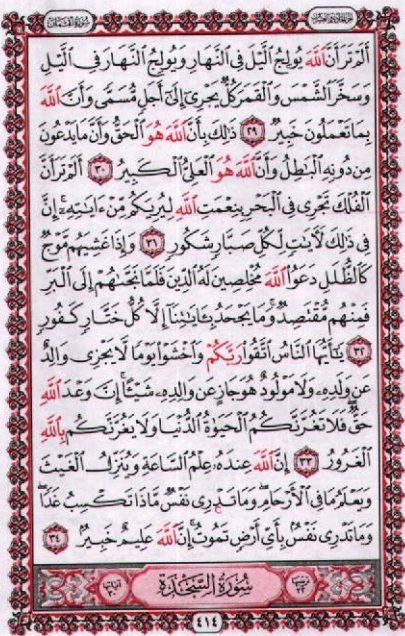 أَلَمْ تَرَ أَنَّ ٱللَّهَ يُولِجُ ٱلَّيْلَ فِى ٱلنَّهَارِ وَيُولِجُ ٱلنَّهَارَ فِى ٱلَّيْلِ
وَسَخَّرَ ٱلشَّمْسَ وَٱلْقَمَرَ كُلٌّ يَجْرِىٓ إِلَىٰٓ أَجَلٍ مُّسَمًّى وَأَنَّ ٱللَّهَ
بِمَا تَعْمَلُونَ خَبِيرٌ ٢٩ ذَٰلِكَ بِأَنَّ ٱللَّهَ هُوَ ٱلْحَقُّ وَأَنَّ مَا يَدْعُونَ
مِن دُونِهِ ٱلْبَٰطِلُ وَأَنَّ ٱللَّهَ هُوَ ٱلْعَلِىُّ ٱلْكَبِيرُ ٣٠ أَلَمْ تَرَ أَنَّ
ٱلْفُلْكَ تَجْرِى فِى ٱلْبَحْرِ بِنِعْمَتِ ٱللَّهِ لِيُرِيَكُم مِّنْ ءَايَٰتِهِۦٓ ۚ إِنَّ
فِى ذَٰلِكَ لَءَايَٰتٍ لِّكُلِّ صَبَّارٍ شَكُورٍ ٣١ وَإِذَا غَشِيَهُم مَّوْجٌ
كَٱلظُّلَلِ دَعَوُا۟ ٱللَّهَ مُخْلِصِينَ لَهُ ٱلدِّينَ فَلَمَّا نَجَّىٰهُمْ إِلَى ٱلْبَرِّ
فَمِنْهُم مُّقْتَصِدٌ ۚ وَمَا يَجْحَدُ بِـَٔايَٰتِنَآ إِلَّا كُلُّ خَتَّارٍ كَفُورٍ
٣٢ يَٰٓأَيُّهَا ٱلنَّاسُ ٱتَّقُوا۟ رَبَّكُمْ وَٱخْشَوْا۟ يَوْمًا لَّا يَجْزِى وَالِدٌ
عَن وَلَدِهِۦ وَلَا مَوْلُودٌ هُوَ جَازٍ عَن وَالِدِهِۦ شَيْـًٔا ۚ إِنَّ وَعْدَ ٱللَّهِ
حَقٌّ ۖ فَلَا تَغُرَّنَّكُمُ ٱلْحَيَوٰةُ ٱلدُّنْيَا وَلَا يَغُرَّنَّكُم بِٱللَّهِ
ٱلْغَرُورُ ٣٣ إِنَّ ٱللَّهَ عِندَهُۥ عِلْمُ ٱلسَّاعَةِ وَيُنَزِّلُ ٱلْغَيْثَ
وَيَعْلَمُ مَا فِى ٱلْأَرْحَامِ ۖ وَمَا تَدْرِى نَفْسٌ مَّاذَا تَكْسِبُ غَدًا ۖ
وَمَا تَدْرِى نَفْسٌۢ بِأَىِّ أَرْضٍ تَمُوتُ ۚ إِنَّ ٱللَّهَ عَلِيمٌ خَبِيرٌۢ ٣٤
سُورَةُ السَّجْدَةِ
٤١٤